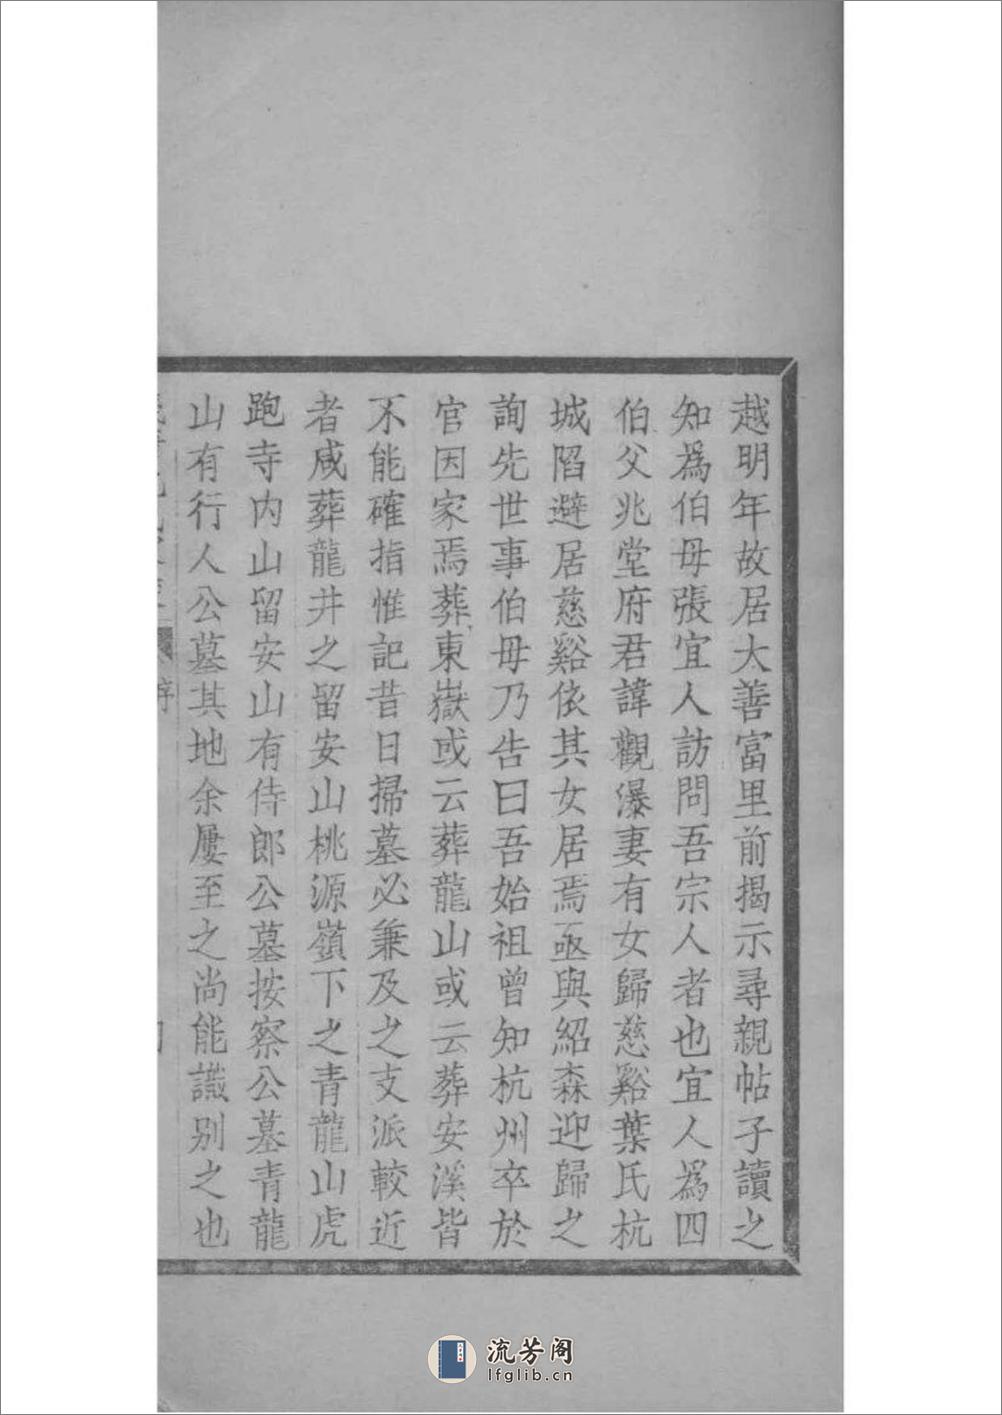 越明年故居太善富里前揭示尋親帖子讀之
知爲伯母張宜人訪問吾宗人者也宜人爲四
伯父兆堂府君諱觀瀑妻有女歸慈谿葉氏杭
城陷避居慈谿依其女居焉亟與紹森迎歸之
詢先世事伯母乃告曰吾始祖曾知杭州卒於
官因家焉葬東嶽或云葬龍山或云葬安溪皆
不能確指惟記昔日掃墓必兼及之支派較近
者咸葬龍井之留安山桃源嶺下之青龍山虎
跑寺内山留安山有侍郎公墓按察公墓青龍
山有行人公墓其地余屢至之尚能識别之也
序
流芳阁
lfglib.cn